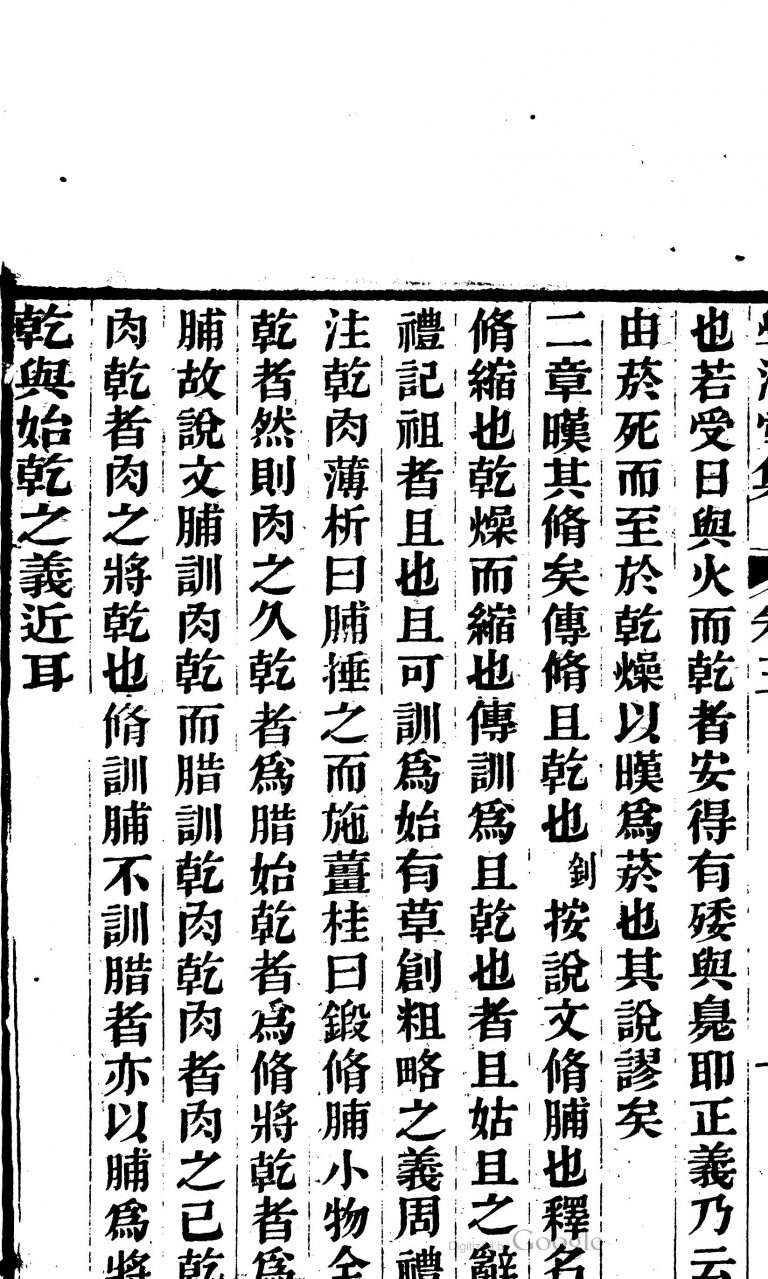 也若受日與火而乾者安得有矮與臭耶正義乃云
由菸死而至於乾燥以暵爲菸也其說謬矣
二章暵其脩矣傳脩且乾也 釗按說文脩脯也釋名
脩縮也乾燥而縮也傳訓爲且乾也者且姑且之辭
禮記祖者且也且可訓爲始有草創粗略之義周禮
注乾肉薄析曰脯捶之而施薑桂曰鍛脩脯小物全
乾者然則肉之久乾者爲腊始乾者爲脩將乾者爲
脯故說文脯訓肉乾而腊訓乾肉乾肉者肉之已乾
肉乾者肉之將乾也脩訓脯不訓腊者亦以脯爲將
乾與始乾之義近耳
Digitized by Google